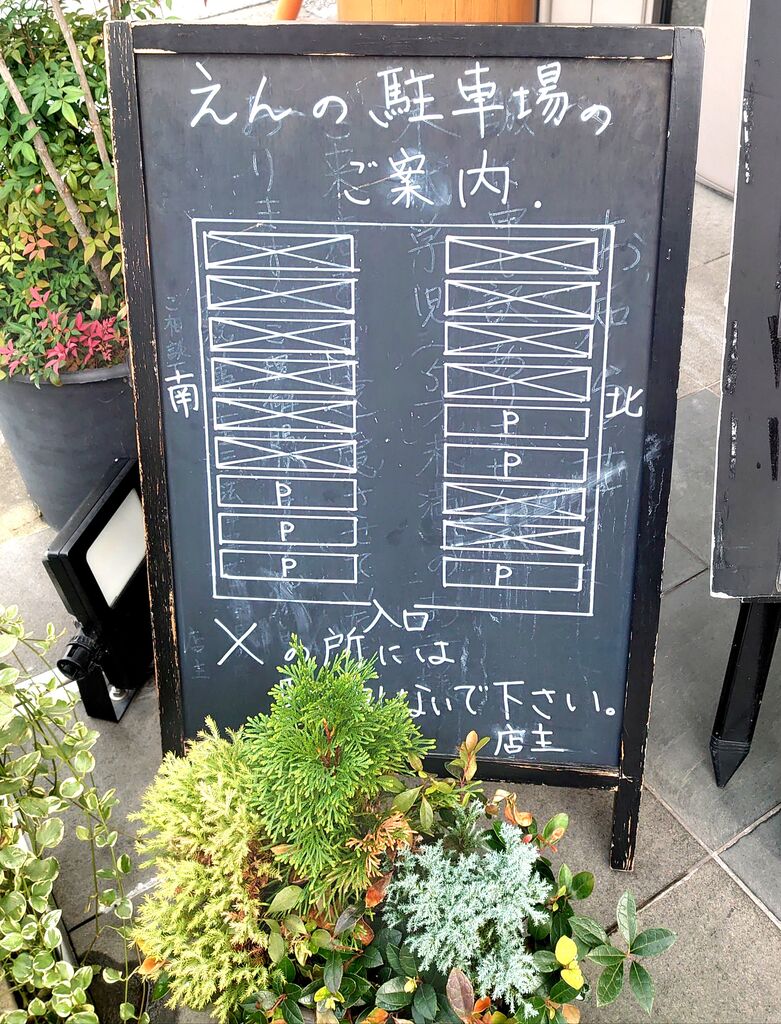 えんの駐車場の
ご案内.
南
北
P
P
P
P
P
P
入口
Xの所には
ないで下さい。
店主